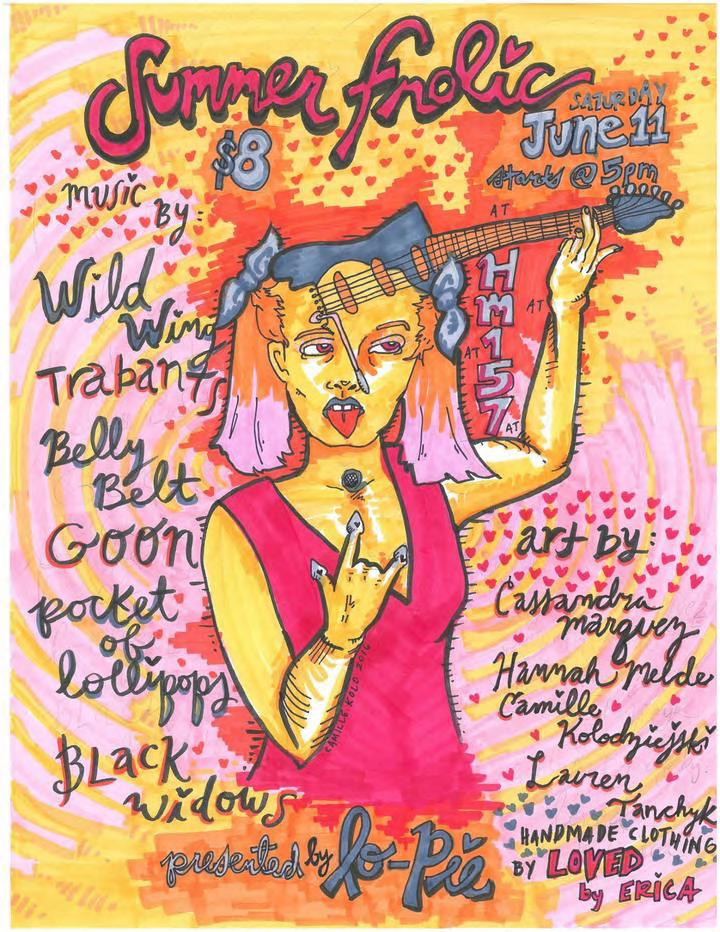 Summer Frolic
$8
SATURDAY
June 11
starts @ 5pm
AT
HM157
AT
AT
AT
music
By:
Wild
Wing
Trabants
Belly
Belt
GOON
pocket
of
lollipops
BLACK
widows
art by:
Cassandra
marquez
Hannah Melde
Camille
Kolodziejski
Lauren
Tanchyk
HANDMADE CLOTHING
BY LOVED
by ERICA
CAMILLE KOLO 2016
presented by lo-Pie